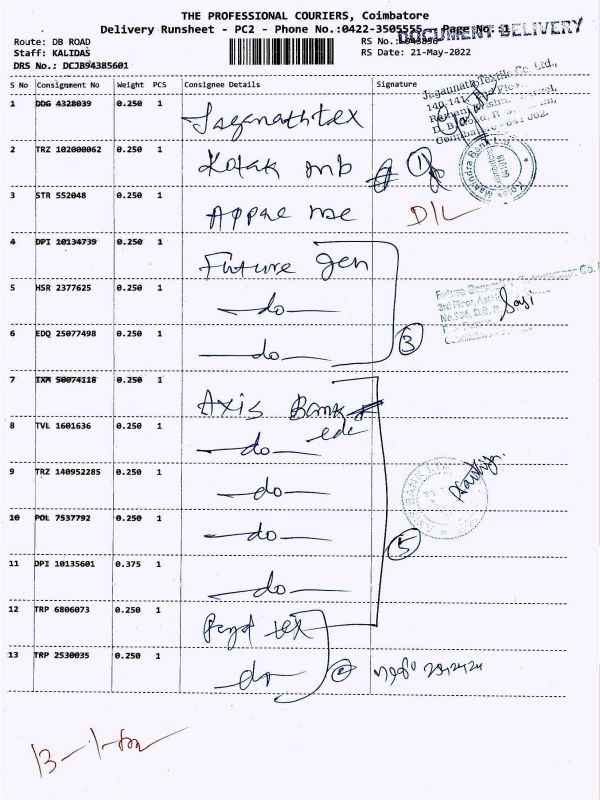 THE PROFESSIONAL COURIERS, Coimbatore
Delivery Runsheet - PC2 - Phone No.:0422-3505555 Page No. 1
DOCUMENT DELIVERY
Route: DB ROAD
Staff: KALIDAS
DRS No.: DCJB94385601
RS Date: 21-May-2022
S No Consignment No Weight PCS Consignee Details Signature
1 DDG 4328039 0.250 1 Jaganathtex
Jagannath Textile Co. Ltd.,
2 TRZ 102000062 0.250 1 Kotak mb ①
3 STR 552048 0.250 1 D/L
4 DPI 10134739 0.250 1 Future gen
5 HSR 2377625 0.250 1 -do-
6 EDQ 25077498 0.250 1 -do- ③
7 IXM 50074118 0.250 1 Axis Bank
8 TVL 1601636 0.250 1 -do-
9 TRZ 140952285 0.250 1 -do-
10 POL 7537792 0.250 1 -do- ⑤
11 DPI 10135601 0.375 1 -do-
12 TRP 6806073 0.250 1
13 TRP 2530035 0.250 1 do ②